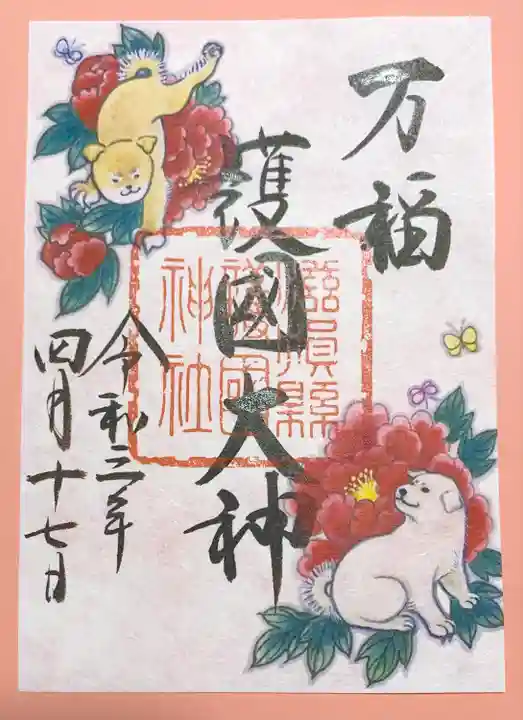 万福
護國大神
令和三年
四月十七日
護國
神社